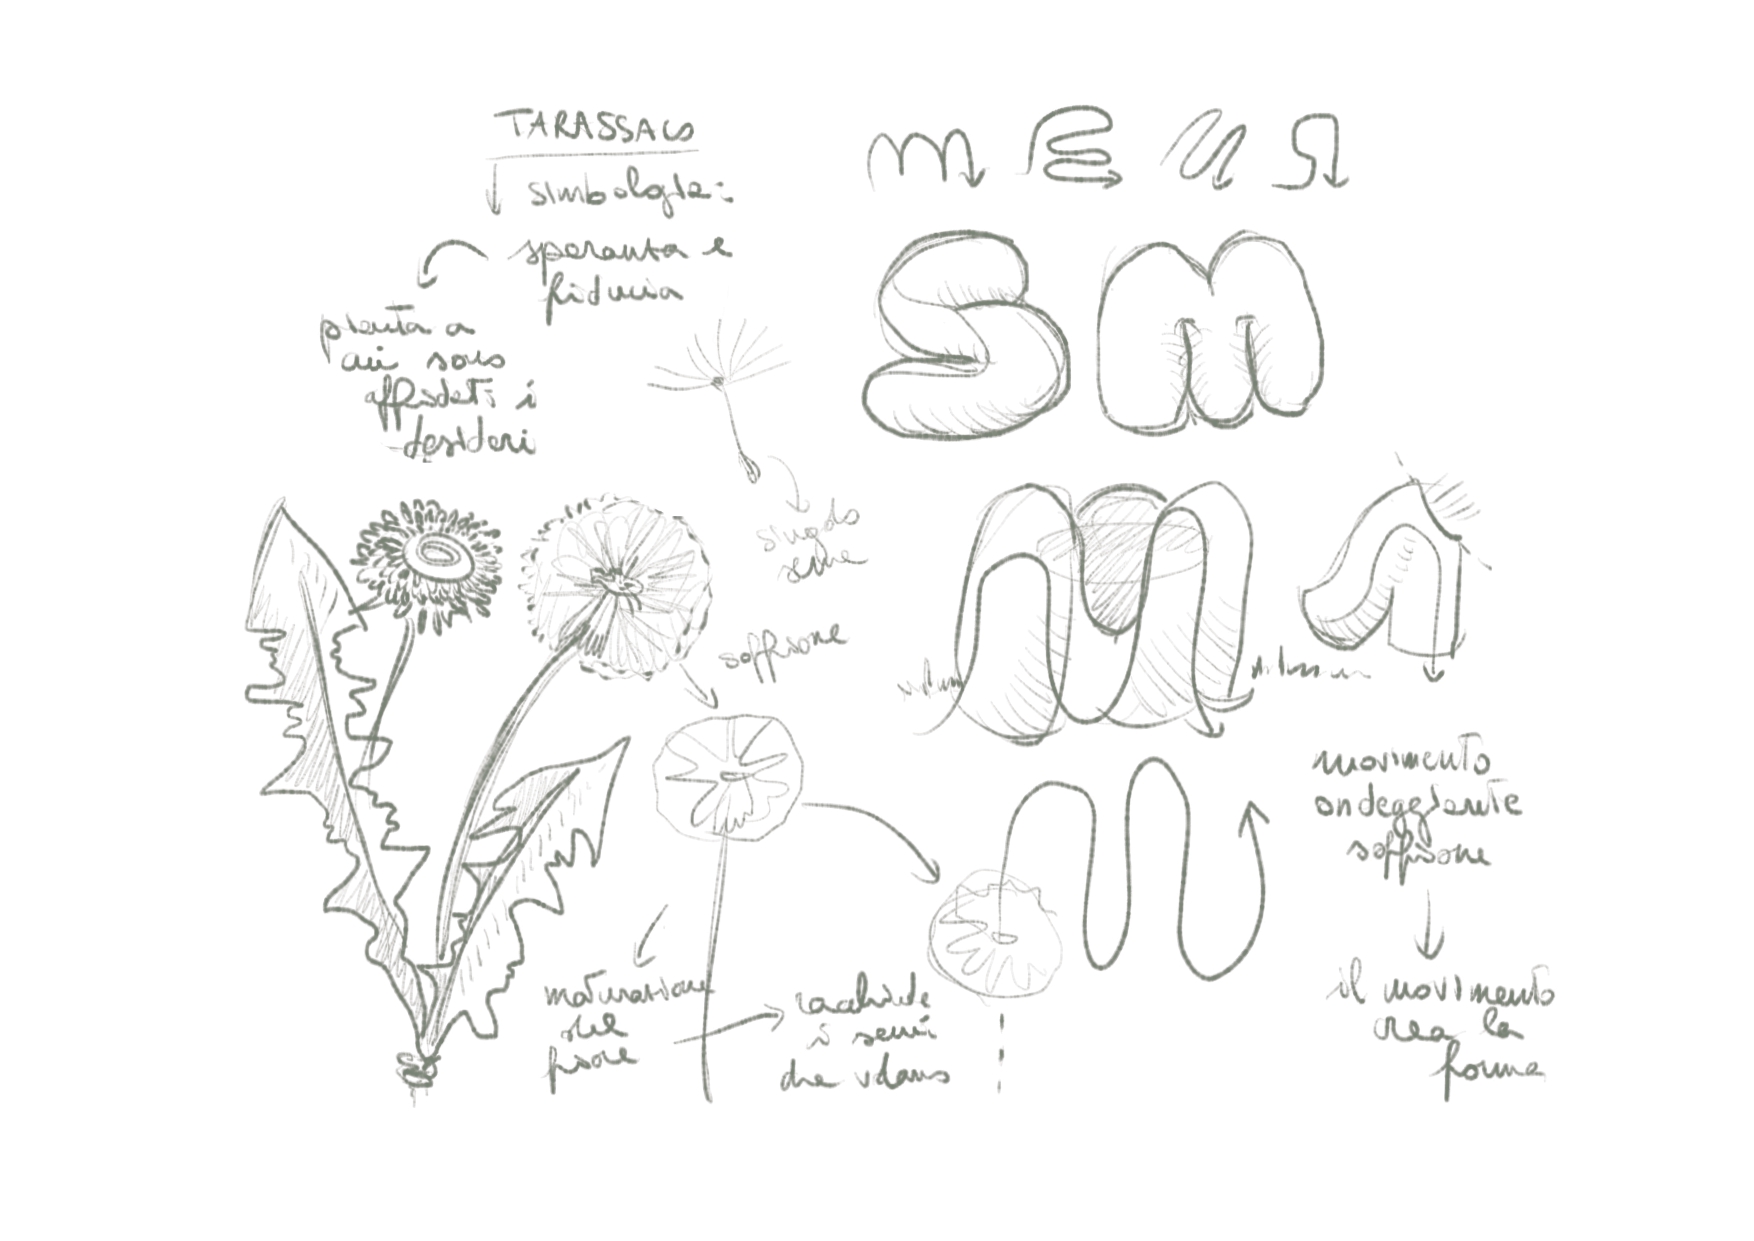 TARASSACO
simbologia:
speranza e
fiducia
pianta a
cui sono
affidati i
desideri
singolo
seme
soffione
maturazione
del
fiore
racchiude
i semi
che volano
S m
volume
movimento
ondeggiante
soffione
il movimento
crea la
forma